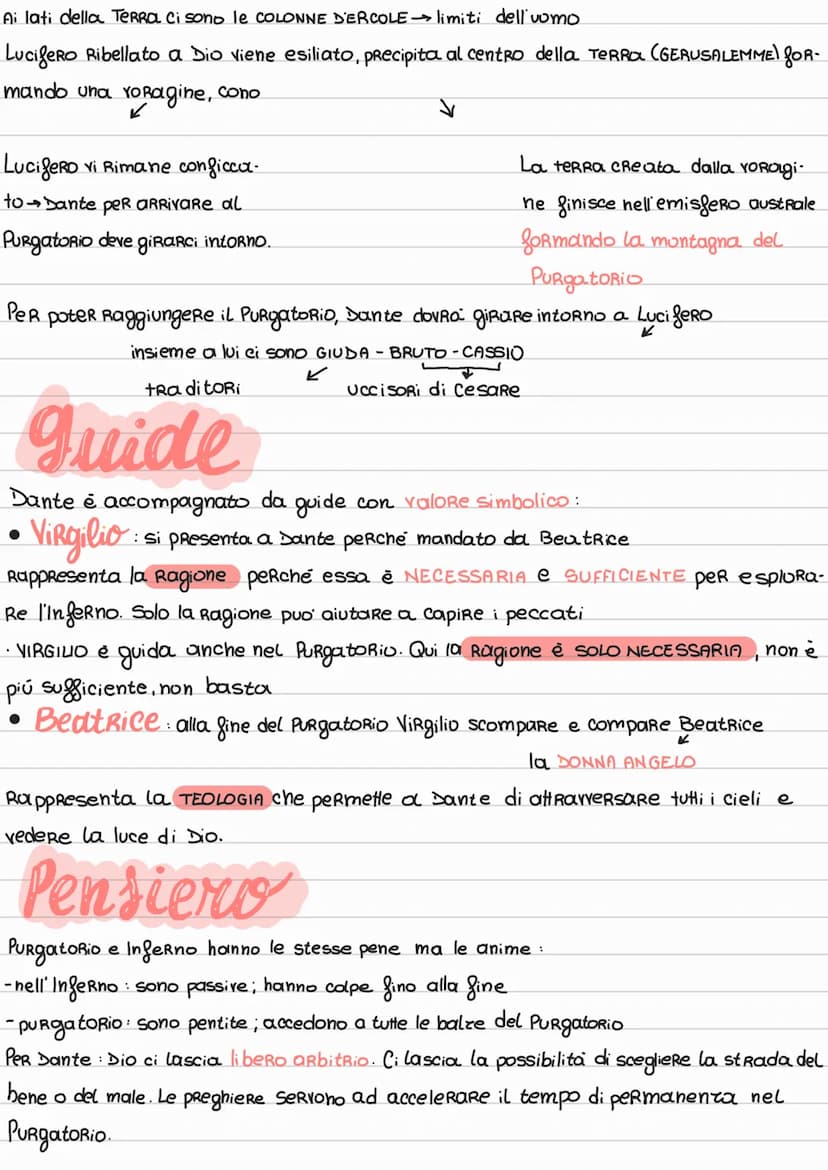 Ai lati della Terra ci sono le COLONNE D'ERCOLE → limiti dell'uomo
Lucifero Ribellato a Dio viene esiliato, precipita al centro della Terra (GERUSALEMME) for-
mando una voragine, cono
Lucifero vi rimane conficca-
to → Dante per arrivare al
Purgatorio deve girarci intorno.
La terra creata dalla voragi-
ne finisce nell'emisfero australe
formando la montagna del
Purgatorio
Per poter raggiungere il Purgatorio, Dante dovrà girare intorno a Lucifero
insieme a lui ci sono GIUDA - BRUTO - CASSIO
traditori
uccisori di Cesare
guide
Dante è accompagnato da guide con valore simbolico :
• Virgilio : si presenta a Dante perché mandato da Beatrice
Rappresenta la Ragione perché essa è NECESSARIA e SUFFICIENTE per esplora-
re l'Inferno. Solo la ragione puo' aiutare a capire i peccati
· VIRGILIO è guida anche nel Purgatorio. Qui la Ragione è SOLO NECESSARIA, non è
piú sufficiente, non basta
• Beatrice : alla fine del Purgatorio Virgilio scompare e compare Beatrice
la DONNA ANGELO
Rappresenta la TEOLOGIA che permette a Dante di attraversare tutti i cieli e
vedere la luce di Dio.
Pensiero
Purgatorio e Inferno hanno le stesse pene ma le anime :
- nell'Inferno : sono passive ; hanno colpe fino alla fine
- purgatorio : sono pentite ; accedono a tutte le balze del Purgatorio
Per Dante : Dio ci lascia libero arbitrio. Ci lascia la possibilità di scegliere la strada del
bene o del male. Le preghiere servono ad accelerare il tempo di permanenza nel
Purgatorio.